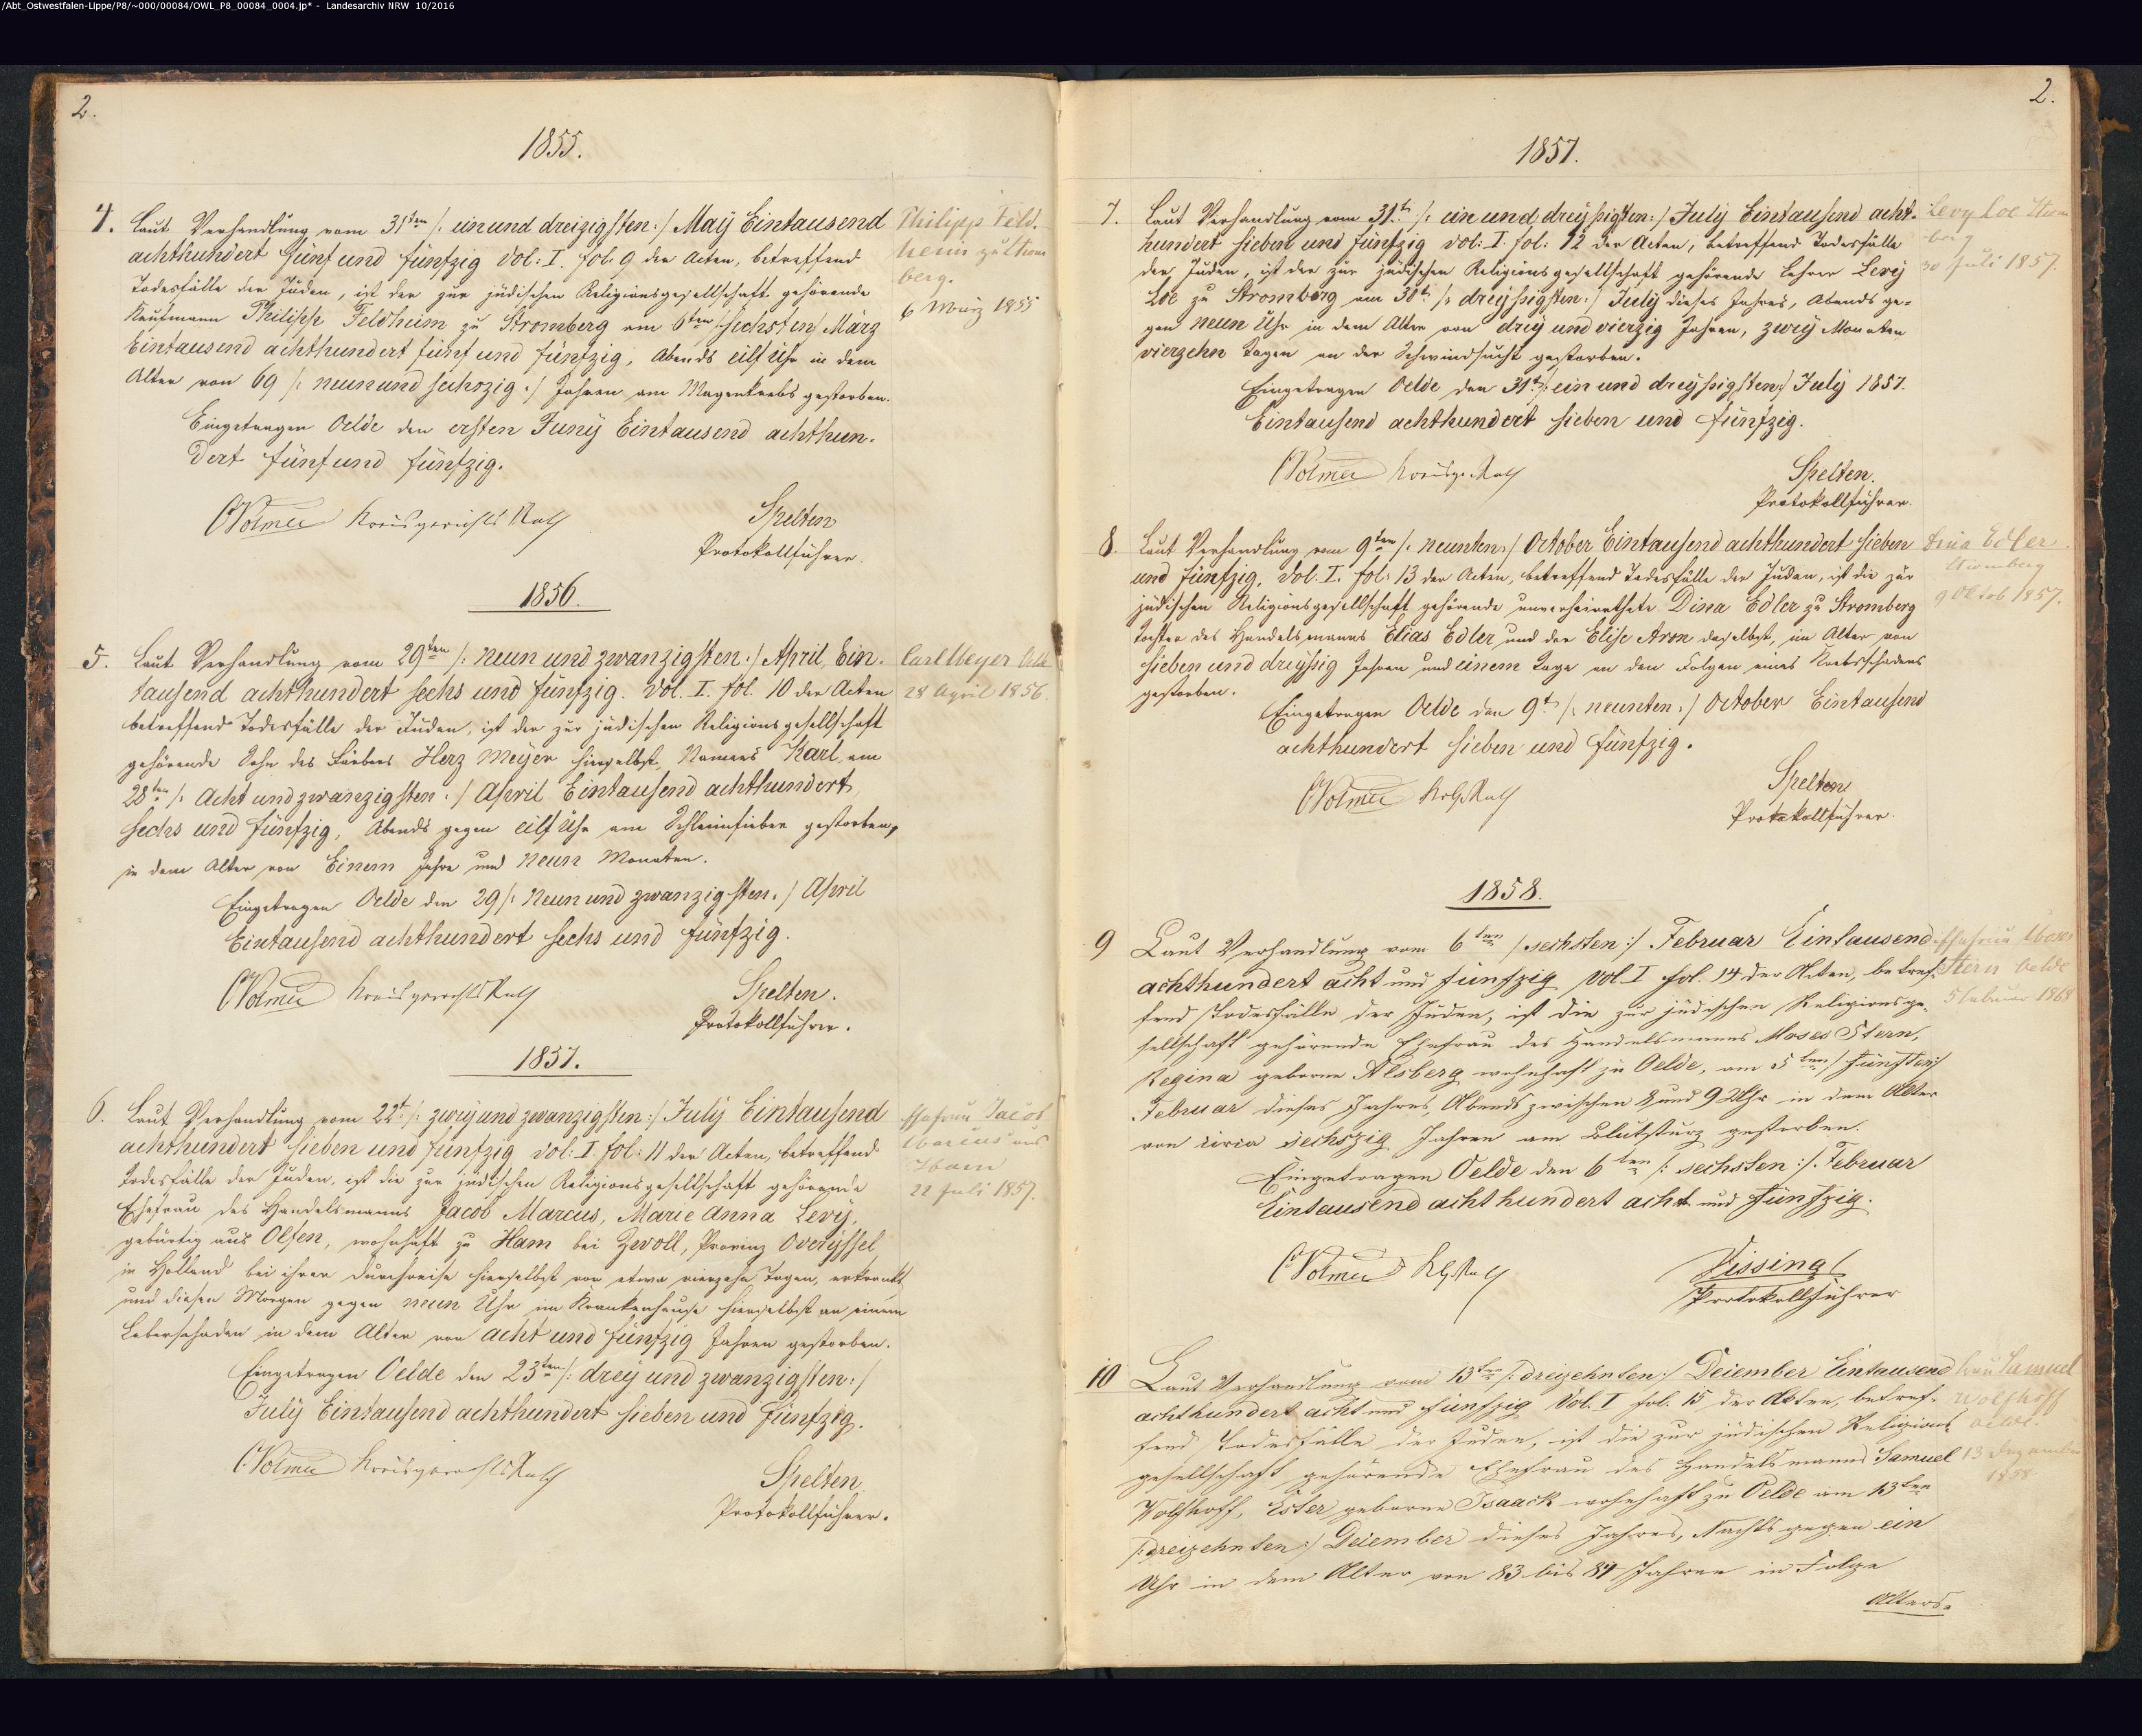 /Abt_Ostwestfalen-Lippe/P8/~000/00084/OWL_P8_00084_0004.jp* - Landesarchiv NRW 10/2016
2.
1855.
4. Laut Verhandlung vom 31ten /: einund dreizigsten :/ Maÿ Eintausend
achthundert fünf und fünfzig Vol: I. fol. 9 der Acten, betreffend
Todesfälle der Juden, ist der zur jüdischen Religionsgesellschaft gehörende
Kaufmann Philipp Feldheim zu Stromberg am 6ten /: sechsten :/ März
Eintausend achthundert fünf und fünfzig, Abends eilf Uhr in dem
Alter von 69 /: neunund sechszig :/ Jahren am Magenkrebs gestorben.
Eingetragen Oelde den ersten Junÿ Eintausend achthun-
dert fünfund fünfzig.
CVolmer Kreisgerichts Rath
Spelten
Protokollführer.
Philipp Feld-
heim zu Strom
berg.
6 März 1855
1856.
5. Laut Verhandlung vom 29ten /: Neun und zwanzigsten :/ April Ein-
tausend achthundert sechs und fünfzig. Vol. I. fol. 10 der Acten
betreffend Todesfälle der Juden, ist der zur jüdischen Religionsgesellschaft
gehörende Sohn des Färbers Herz Meÿer hierselbst, Namens Karl, am
28ten /: Acht und zwanzigsten :/ April Eintausend achthundert
sechs und fünfzig, Abends gegen eilf Uhr am Schleimfieber gestorben,
in dem Alter von Einem Jahre und Neun Monaten.
Eingetragen Oelde den 29 /: Neun und zwanzigsten :/ April
Eintausend achthundert sechs und fünfzig.
CVolmer Kreisgerichts Rath
Spelten.
Protokollführer.
Carl Meyer
28 April 1856.
1857.
6. Laut Verhandlung vom 22t /: zweÿ und zwanzigsten :/ Julÿ Eintausend
achthundert sieben und fünfzig Vol: I. fol: 11 der Acten, betreffend
Todesfälle der Juden, ist die zur jüdischen Religionsgesellschaft gehörende
Ehefrau des Handelsmanns Jacob Marcus, Marie Anna Levÿ,
gebürtig aus Olfen, wohnhaft zu Ham bei Zwoll, Provinz Overÿssel
in Holland bei ihrer Durchreise hierselbst vor etwa vierzehn Tagen, erkrankt
und diesen Morgen gegen neun Uhr im Krankenhause hierselbst an einem
Leberschaden in dem Alter von acht und fünfzig Jahren gestorben.
Eingetragen Oelde den 23ten /: dreÿ und zwanzigsten :/
Julÿ Eintausend achthundert sieben und fünfzig.
CVolmer Kreisgerichts Rath
Spelten
Protokollführer.
Ehefrau Jacob
Marcus aus
Ham
22 Juli 1857.
2.
1857.
7. Laut Verhandlung vom 31t. /: ein und dreÿßigsten :/ Julÿ Eintausend acht-
hundert sieben und fünfzig Vol: I. fol: 12 der Acten, betreffend Todesfälle
der Juden, ist der zur jüdischen Religionsgesellschaft gehörende Lehrer Levÿ
Löe zu Stromberg am 30t. /: dreÿßigsten :/ Julÿ dieses Jahres, Abends ge-
gen neun Uhr in dem Alter von dreÿ und vierzig Jahren, zweÿ Monaten
vierzehn Tagen an der Schwindsucht gestorben.
Eingetragen Oelde den 31t /: ein und dreÿßigsten :/ Julÿ 1857.
Eintausend achthundert sieben und fünfzig.
CVolmer Kreisg. Rath
Spelten.
Protokollführer.
Levy Loe Strom
berg
30 Juli 1857.
8. Laut Verhandlung vom 9ten /: neunten :/ October Eintausend achthundert sieben
und fünfzig, Vol. I. fol: 13 der Acten, betreffend Todesfälle der Juden, ist die zur
jüdischen Religionsgesellschaft gehörende unverheirathete Dina Edler zu Stromberg
Tochter des Handelsmanns Elias Edler und der Elise Aron daselbst, im Alter von
sieben und dreÿßig Jahren und einem Tage an den Folgen eines Krebsschadens
gestorben.
Eingetragen Oelde den 9t /: neunten :/ October Eintausend
achthundert sieben und fünfzig.
CVolmer KrGRath
Spelten
Protokollführer.
Dina Edler
Stromberg
9 Oktob 1857.
1858.
9 Laut Verhandlung vom 6ten /: sechsten :/ Februar Eintausend
achthundert acht und fünfzig Vol I fol. 14 der Akten, betref-
fend Todesfälle der Juden, ist die zur jüdischen Religionsge-
sellschaft gehörende Ehefrau des Handelsmanns Moses Stern,
Regina geborne Alsberg wohnhaft zu Oelde, am 5ten /: fünften :/
Februar dieses Jahres, Abends zwischen 8 und 9 Uhr in dem Alter
von circa sechszig Jahren am Blutsturz gestorben.
Eingetragen Oelde den 6ten /: sechsten :/ Februar
Eintausend achthundert acht und fünfzig.
CVolmer KGRath
Vissing
Protokollführer
Ehefrau Moses
Stern Oelde
5 Februar 1868
10 Laut Verhandlung vom 13ten /: dreizehnten :/ Dezember Eintausend
achthundert acht und fünfzig Vol. I fol. 15 der Akten, betref-
fend Todesfälle der Juden, ist die zur jüdischen Religions-
gesellschaft gehörende Ehefrau des Handelsmanns Samuel
Wolfhoff, Ester geborne Isaack wohnhaft zu Oelde am 13ten
/: dreizehnten :/ Dezember dieses Jahres, Nachts gegen ein
Uhr in dem Alter von 83 bis 84 Jahren in Folge
Alters-
Frau Samuel
Wolfhoff
Oelde.
13 Dezember
1858